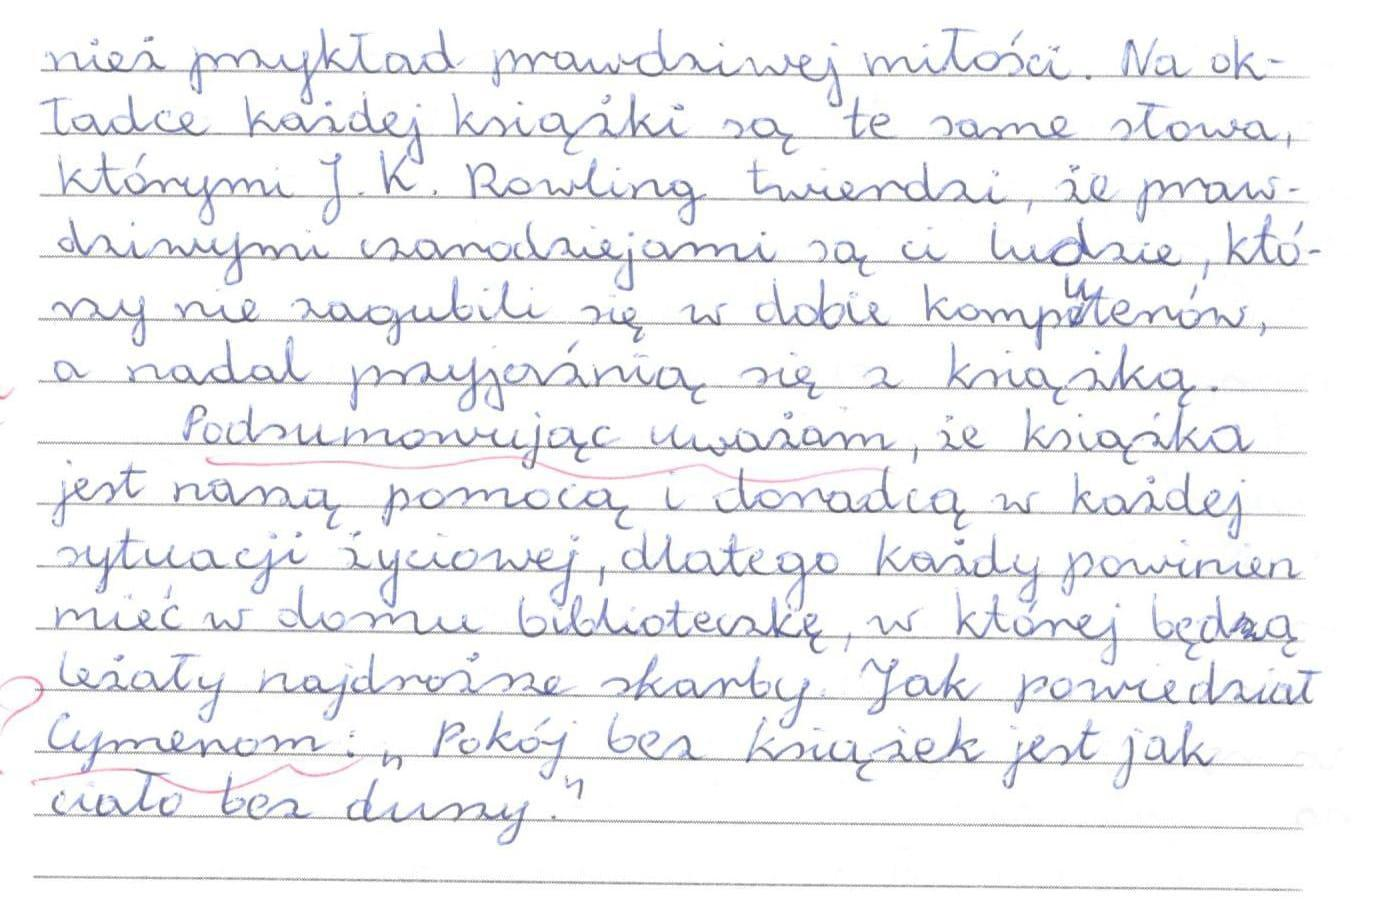 nież przykład prawdziwej miłości. Na ok-
ładce każdej książki są te same słowa,
którymi J. K. Rowling twierdzi, że praw-
dziwymi czarodziejami są ci ludzie, któ-
rzy nie zagubili się w dobie komputerów,
a nadal przyjaźnią się z książką.
Podsumowując uważam, że książka
jest naszą pomocą i doradcą w każdej
sytuacji życiowej, dlatego każdy powinien
mieć w domu biblioteczkę, w której będą
leżały najdroższe skarby. Jak powiedział
Cymerom: „Pokój bez książek jest jak
ciało bez duszy."